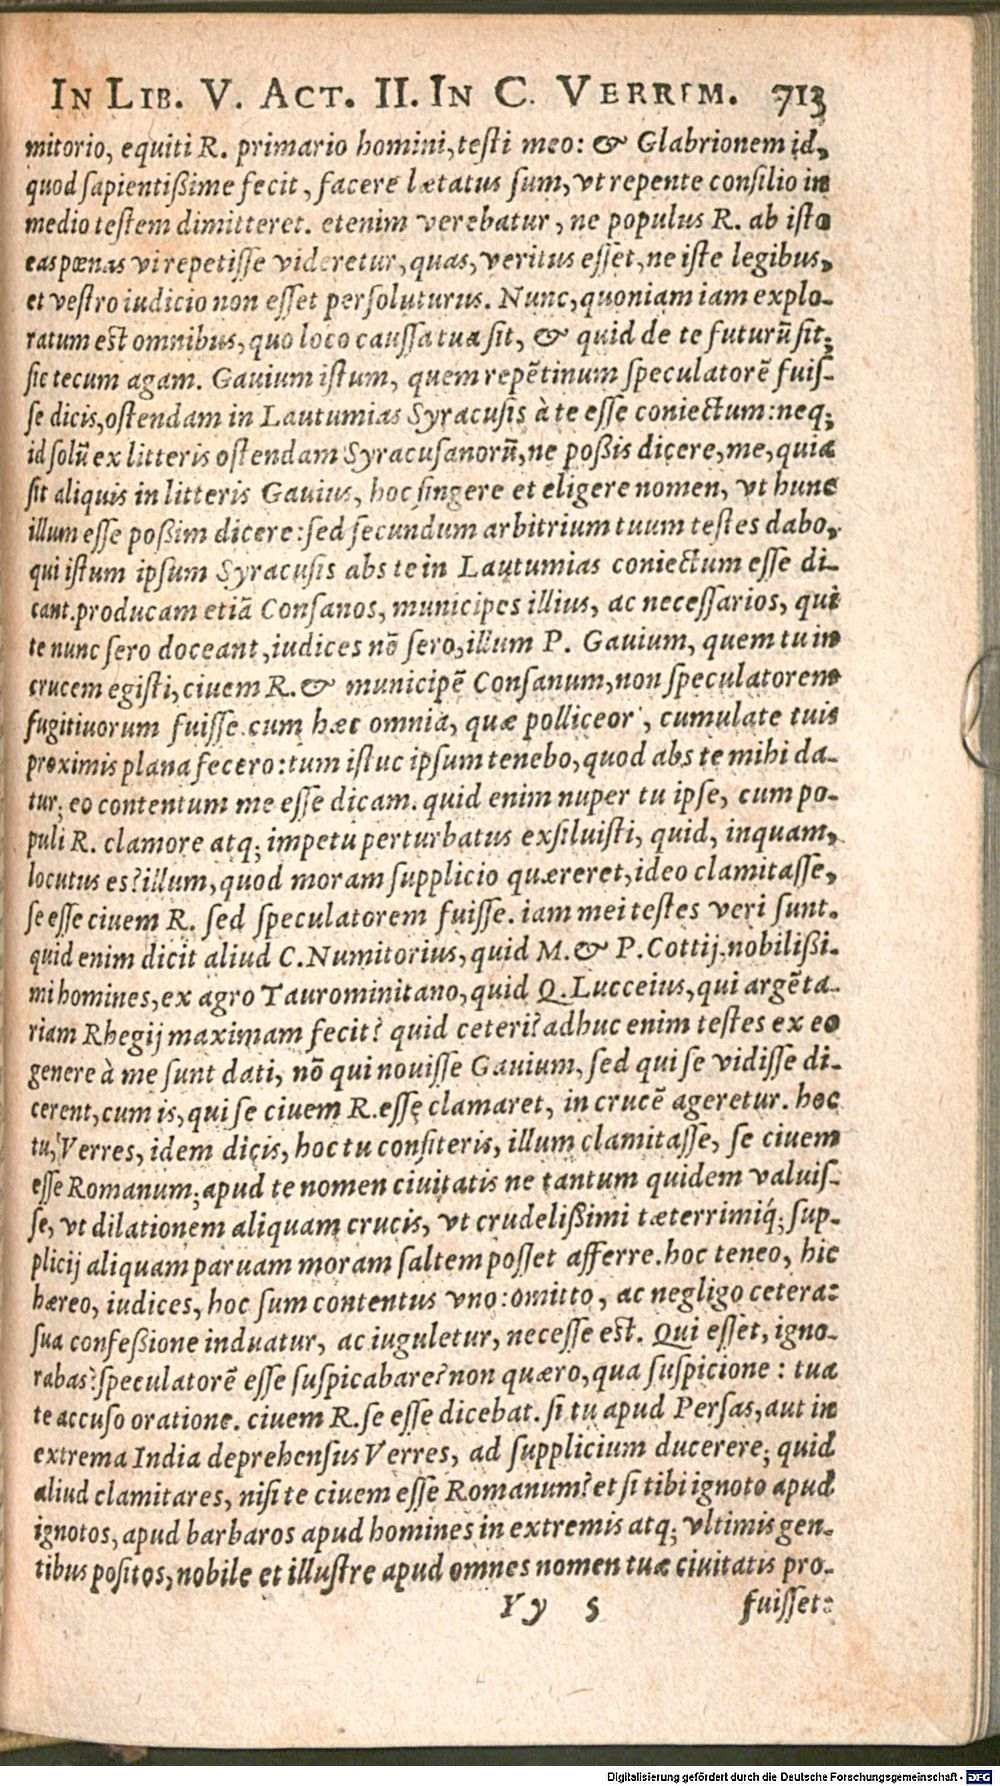 IN LIB. V. ACT. II. IN C. VERREM. 713
mitorio, equiti R. primario homini, testi meo: & Glabrionem id,
quod sapientißime fecit, facere lætatus sum, vt repente consilio in
medio testem dimitteret. etenim verebatur, ne populus R. ab isto
eas pœnas vi repetisse videretur, quas, veritus esset, ne iste legibus,
et vestro iudicio non esset persoluturus. Nunc, quoniam iam explo-
ratum est omnibus, quo loco caussa tua sit, & quid de te futurū sit;
sic tecum agam. Gauium istum, quem repētinum speculatorē fuis-
se dicis, ostendam in Lautumias Syracusis à te esse coniectum: neq;
id solū ex litteris ostendam Syracusanorū, ne poßis dicere, me, quia
sit aliquis in litteris Gauius, hoc fingere et eligere nomen, vt hunc
illum esse poßim dicere: sed secundum arbitrium tuum testes dabo,
qui istum ipsum Syracusis abs te in Lautumias coniectum esse di-
cant. producam etiā Consanos, municipes illius, ac necessarios, qui
te nunc sero doceant, iudices nō sero, illum P. Gauium, quem tu in
crucem egisti, ciuem R. & municipē Consanum, non speculatorem
fugitiuorum fuisse. cum hæc omnia, quæ polliceor, cumulate tuis
proximis plana fecero: tum istuc ipsum tenebo, quod abs te mihi da-
tur; eo contentum me esse dicam. quid enim nuper tu ipse, cum po-
puli R. clamore atq; impetu perturbatus exsiluisti, quid, inquam,
locutus es? illum, quod moram supplicio quæreret, ideo clamitasse,
se esse ciuem R. sed speculatorem fuisse. iam mei testes veri sunt.
quid enim dicit aliud C. Numitorius, quid M. & P. Cottij, nobilißi-
mi homines, ex agro Taurominitano, quid Q. Lucceius, qui argēta-
riam Rhegij maximam fecit? quid ceteri? adhuc enim testes ex eo
genere à me sunt dati, nō qui nouisse Gauium, sed qui se vidisse di-
cerent, cum is, qui se ciuem R. esse clamaret, in crucē ageretur. hoc
tu, Verres, idem dicis, hoc tu confiteris, illum clamitasse, se ciuem
esse Romanum; apud te nomen ciuitatis ne tantum quidem valuis-
se, vt dilationem aliquam crucis, vt crudelißimi tæterrimiq́; sup-
plicij aliquam paruam moram saltem posset afferre. hoc teneo, hic
hæreo, iudices, hoc sum contentus vno: omitto, ac negligo cetera:
sua confeßione induatur, ac iuguletur, necesse est. Qui esset, igno-
rabas? speculatorē esse suspicabare? non quæro, qua suspicione: tua
te accuso oratione. ciuem R. se esse dicebat. si tu apud Persas, aut in
extrema India deprehensus Verres, ad supplicium ducerere; quid
aliud clamitares, nisi te ciuem esse Romanum? et si tibi ignoto apud
ignotos, apud barbaros apud homines in extremis atq; vltimis gen-
tibus positos, nobile et illustre apud omnes nomen tuæ ciuitatis pro-
Yy 5 fuisset:
Digitalisierung gefördert durch die Deutsche Forschungsgemeinschaft - DFG